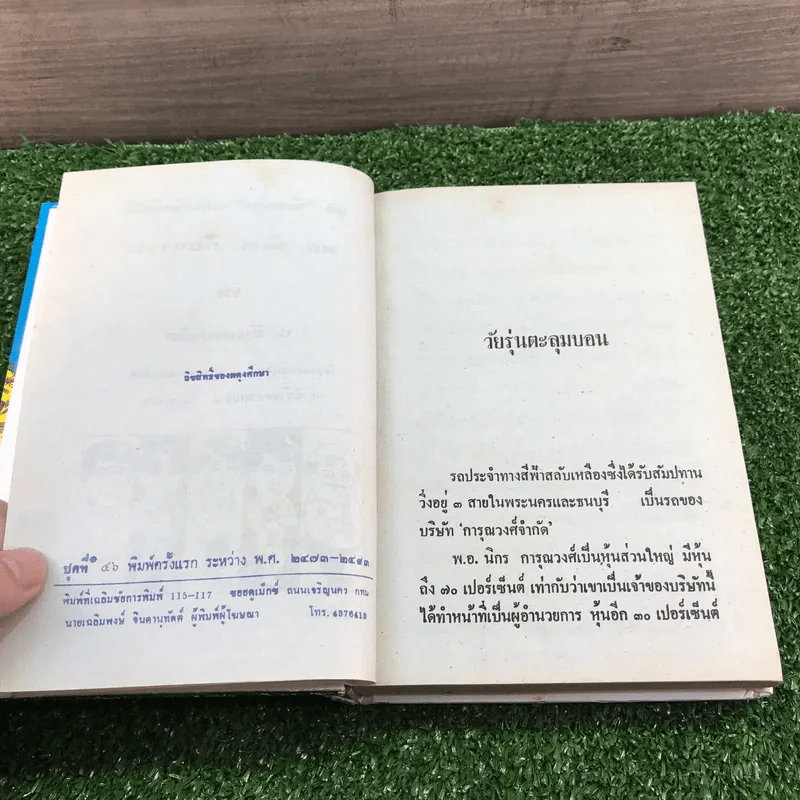 ลิขสิทธิ์ของผดุงศึกษา
ชุดที่ ๔๖ พิมพ์ครั้งแรก ระหว่าง พ.ศ. ๒๔๗๓-๒๔๙๓
พิมพ์ที่เฉลิมชัยการพิมพ์ 115-117 ซอยดูเม็กซ์ ถนนเจริญนคร กทม
นายเฉลิมพงษ์ จินดานุทัตต์ ผู้พิมพ์ผู้โฆษณา โทร. 4376418
วัยรุ่นตะลุมบอน
รถประจำทางสีฟ้าสลับเหลืองซึ่งได้รับสัมปทาน
วิ่งอยู่ ๓ สายในพระนครและธนบุรี เป็นรถของ
บริษัท ‘การุณวงศ์จำกัด’
พ.อ. นิกร การุณวงศ์เป็นหุ้นส่วนใหญ่ มีหุ้น
ถึง ๗๐ เปอร์เซ็นต์ เท่ากับว่าเขาเป็นเจ้าของบริษัทนี้
ได้ทำหน้าที่เป็นผู้อำนวยการ หุ้นอีก ๓๐ เปอร์เซ็นต์